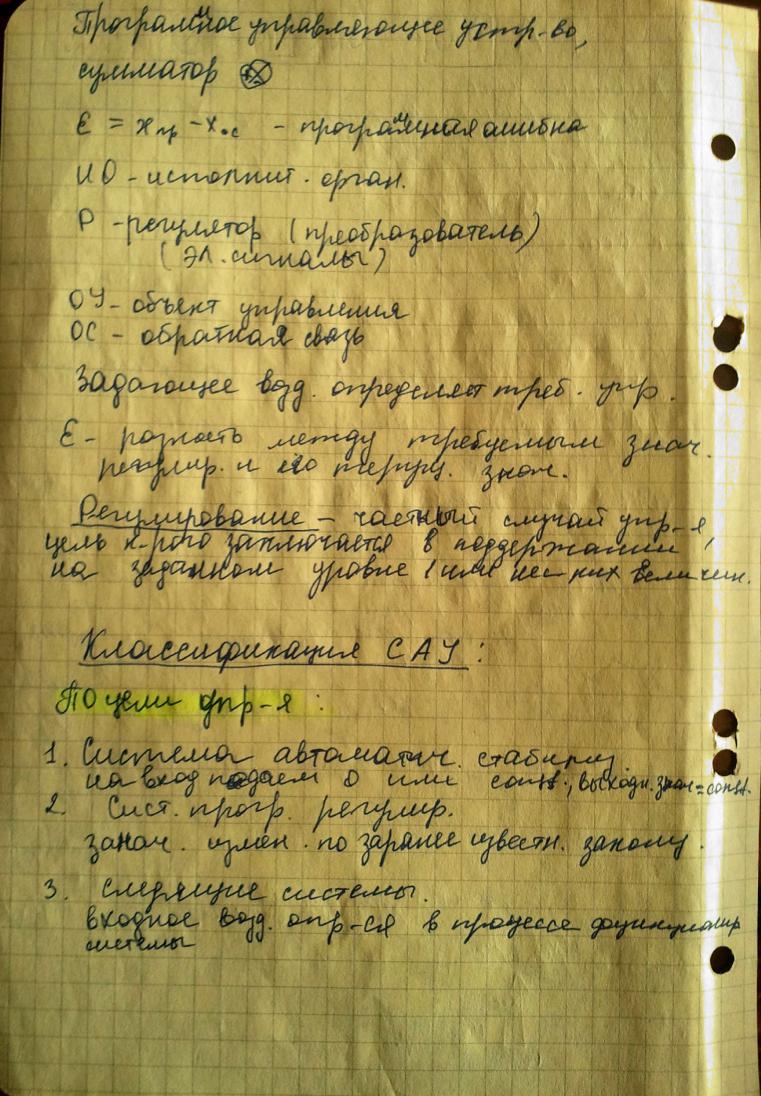 Программное управляющее устр-во,
сумматор ⊗
Ɛ = x пр - x о.с - программная ошибка
ИО - исполнит. орган.
Р - регулятор (преобразователь)
(эл. сигналы)
ОУ - объект управления
ОС - обратная связь
Задающее возд. определяет треб. упр.
Ɛ - разность между требуемым знач.
регулир. и его текущ. знач.
Регулирование - частный случай упр-я,
цель к-рого заключается в поддержании
на заданном уровне 1 или нес-ких величин.
Классификация САУ:
По цели упр-я:
1. Система автоматич. стабилиз.
на вход подаем 0 или const., выходн. знач = const.
2. Сист. прогр. регулир.
измен. по заранее известн. закону.
3. Следящие системы.
входное возд. опр-ся в процессе функционир
системы